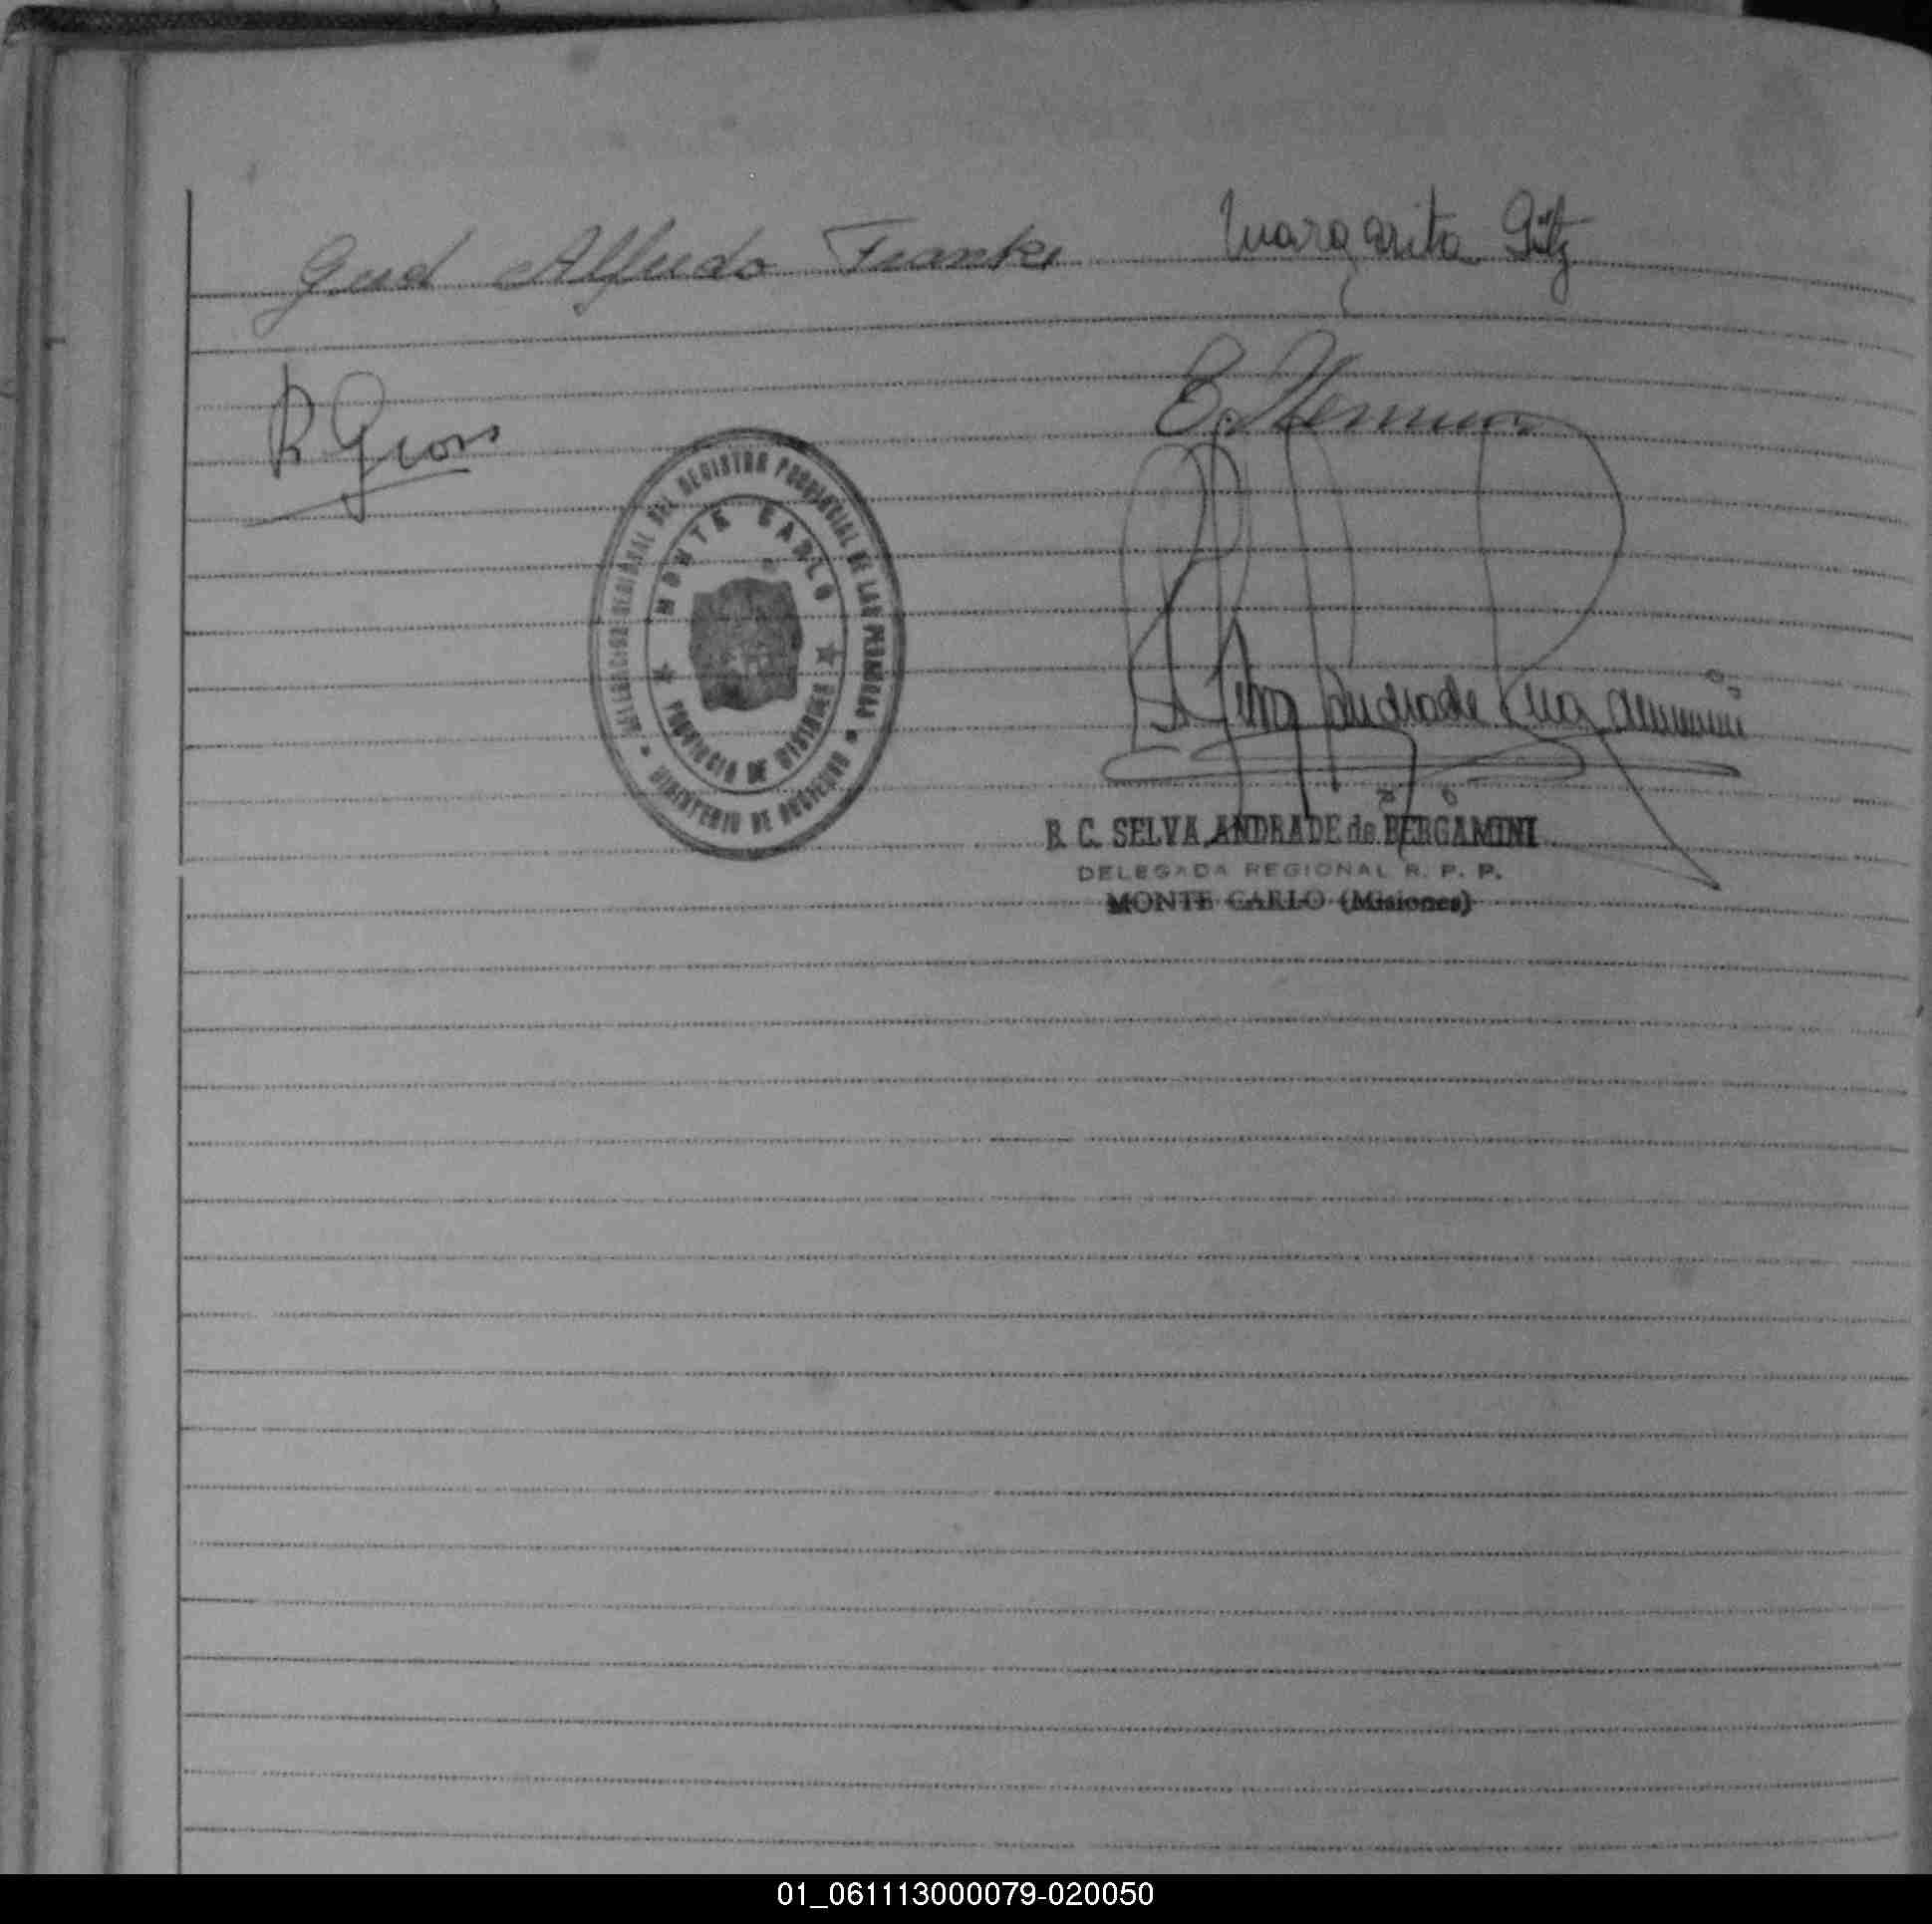 Gerd Alfredo Franke Margarita Götz
R Gross
DELEGACION REGIONAL DEL REGISTRO PROVINCIAL DE LAS PERSONAS
MONTE CARLO
PROVINCIA DE MISIONES
MINISTERIO DE GOBIERNO
R. C. SELVA ANDRADE de BERGAMINI
DELEGADA REGIONAL R. P. P.
MONTE CARLO (Misiones)
01_061113000079-020050